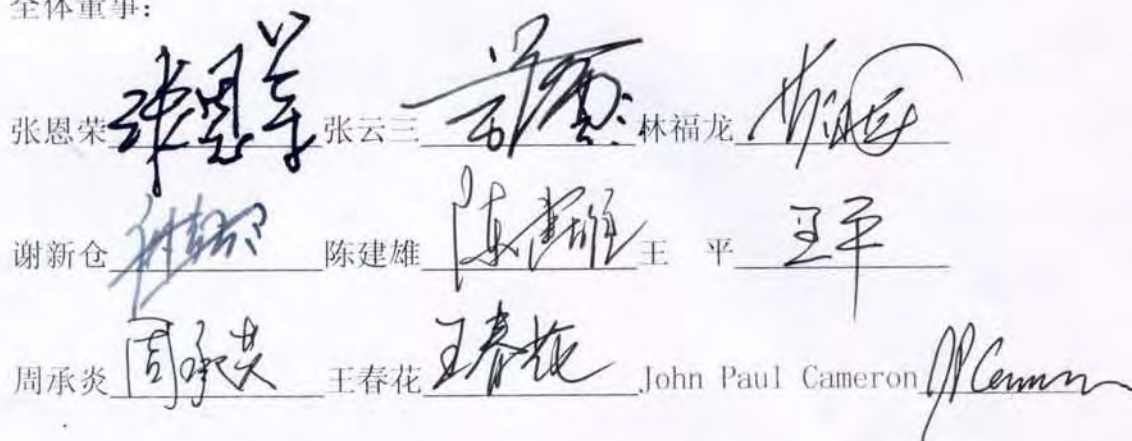 全体董事：
张恩荣 张恩荣 张云三 林福龙
谢新仓 陈建雄 陈建雄 王 平 王平
周承炎 周承炎 王春花 王春花 John Paul Cameron JPCameron